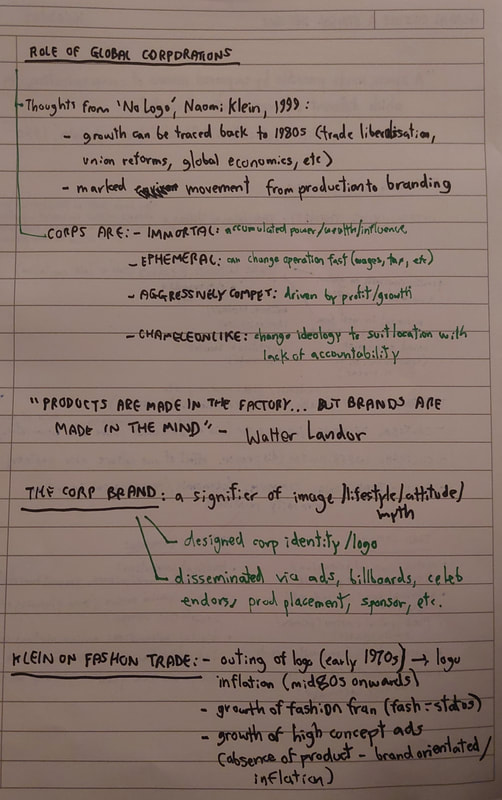 ROLE OF GLOBAL CORPORATIONS
Thoughts from 'No Logo', Naomi Klein, 1999:
- growth can be traced back to 1980s (trade liberalisation,
union reforms, global economics, etc)
- marked movement from production to branding
CORPS ARE: - IMMORTAL: accumulated power/wealth/influence
- EPHEMERAL: can change operation fast (wages, tax, etc)
- AGGRESSIVELY COMPET: driven by profit/growth
- CHAMELEONLIKE: change ideology to suit location with
lack of accountability
"PRODUCTS ARE MADE IN THE FACTORY... BUT BRANDS ARE
MADE IN THE MIND" - Walter Landor
THE CORP BRAND: a signifier of image/lifestyle/attitude/
myth
designed corp identity/logo
disseminated via ads, billboards, celeb
endors, prod placement, sponsor, etc.
KLEIN ON FASHION TRADE: - outing of logo (early 1970s) → logo
inflation (mid 80s onwards)
- growth of fashion fran (fash = status)
- growth of high concept ads
(absence of product - brand orientated/
inflation)